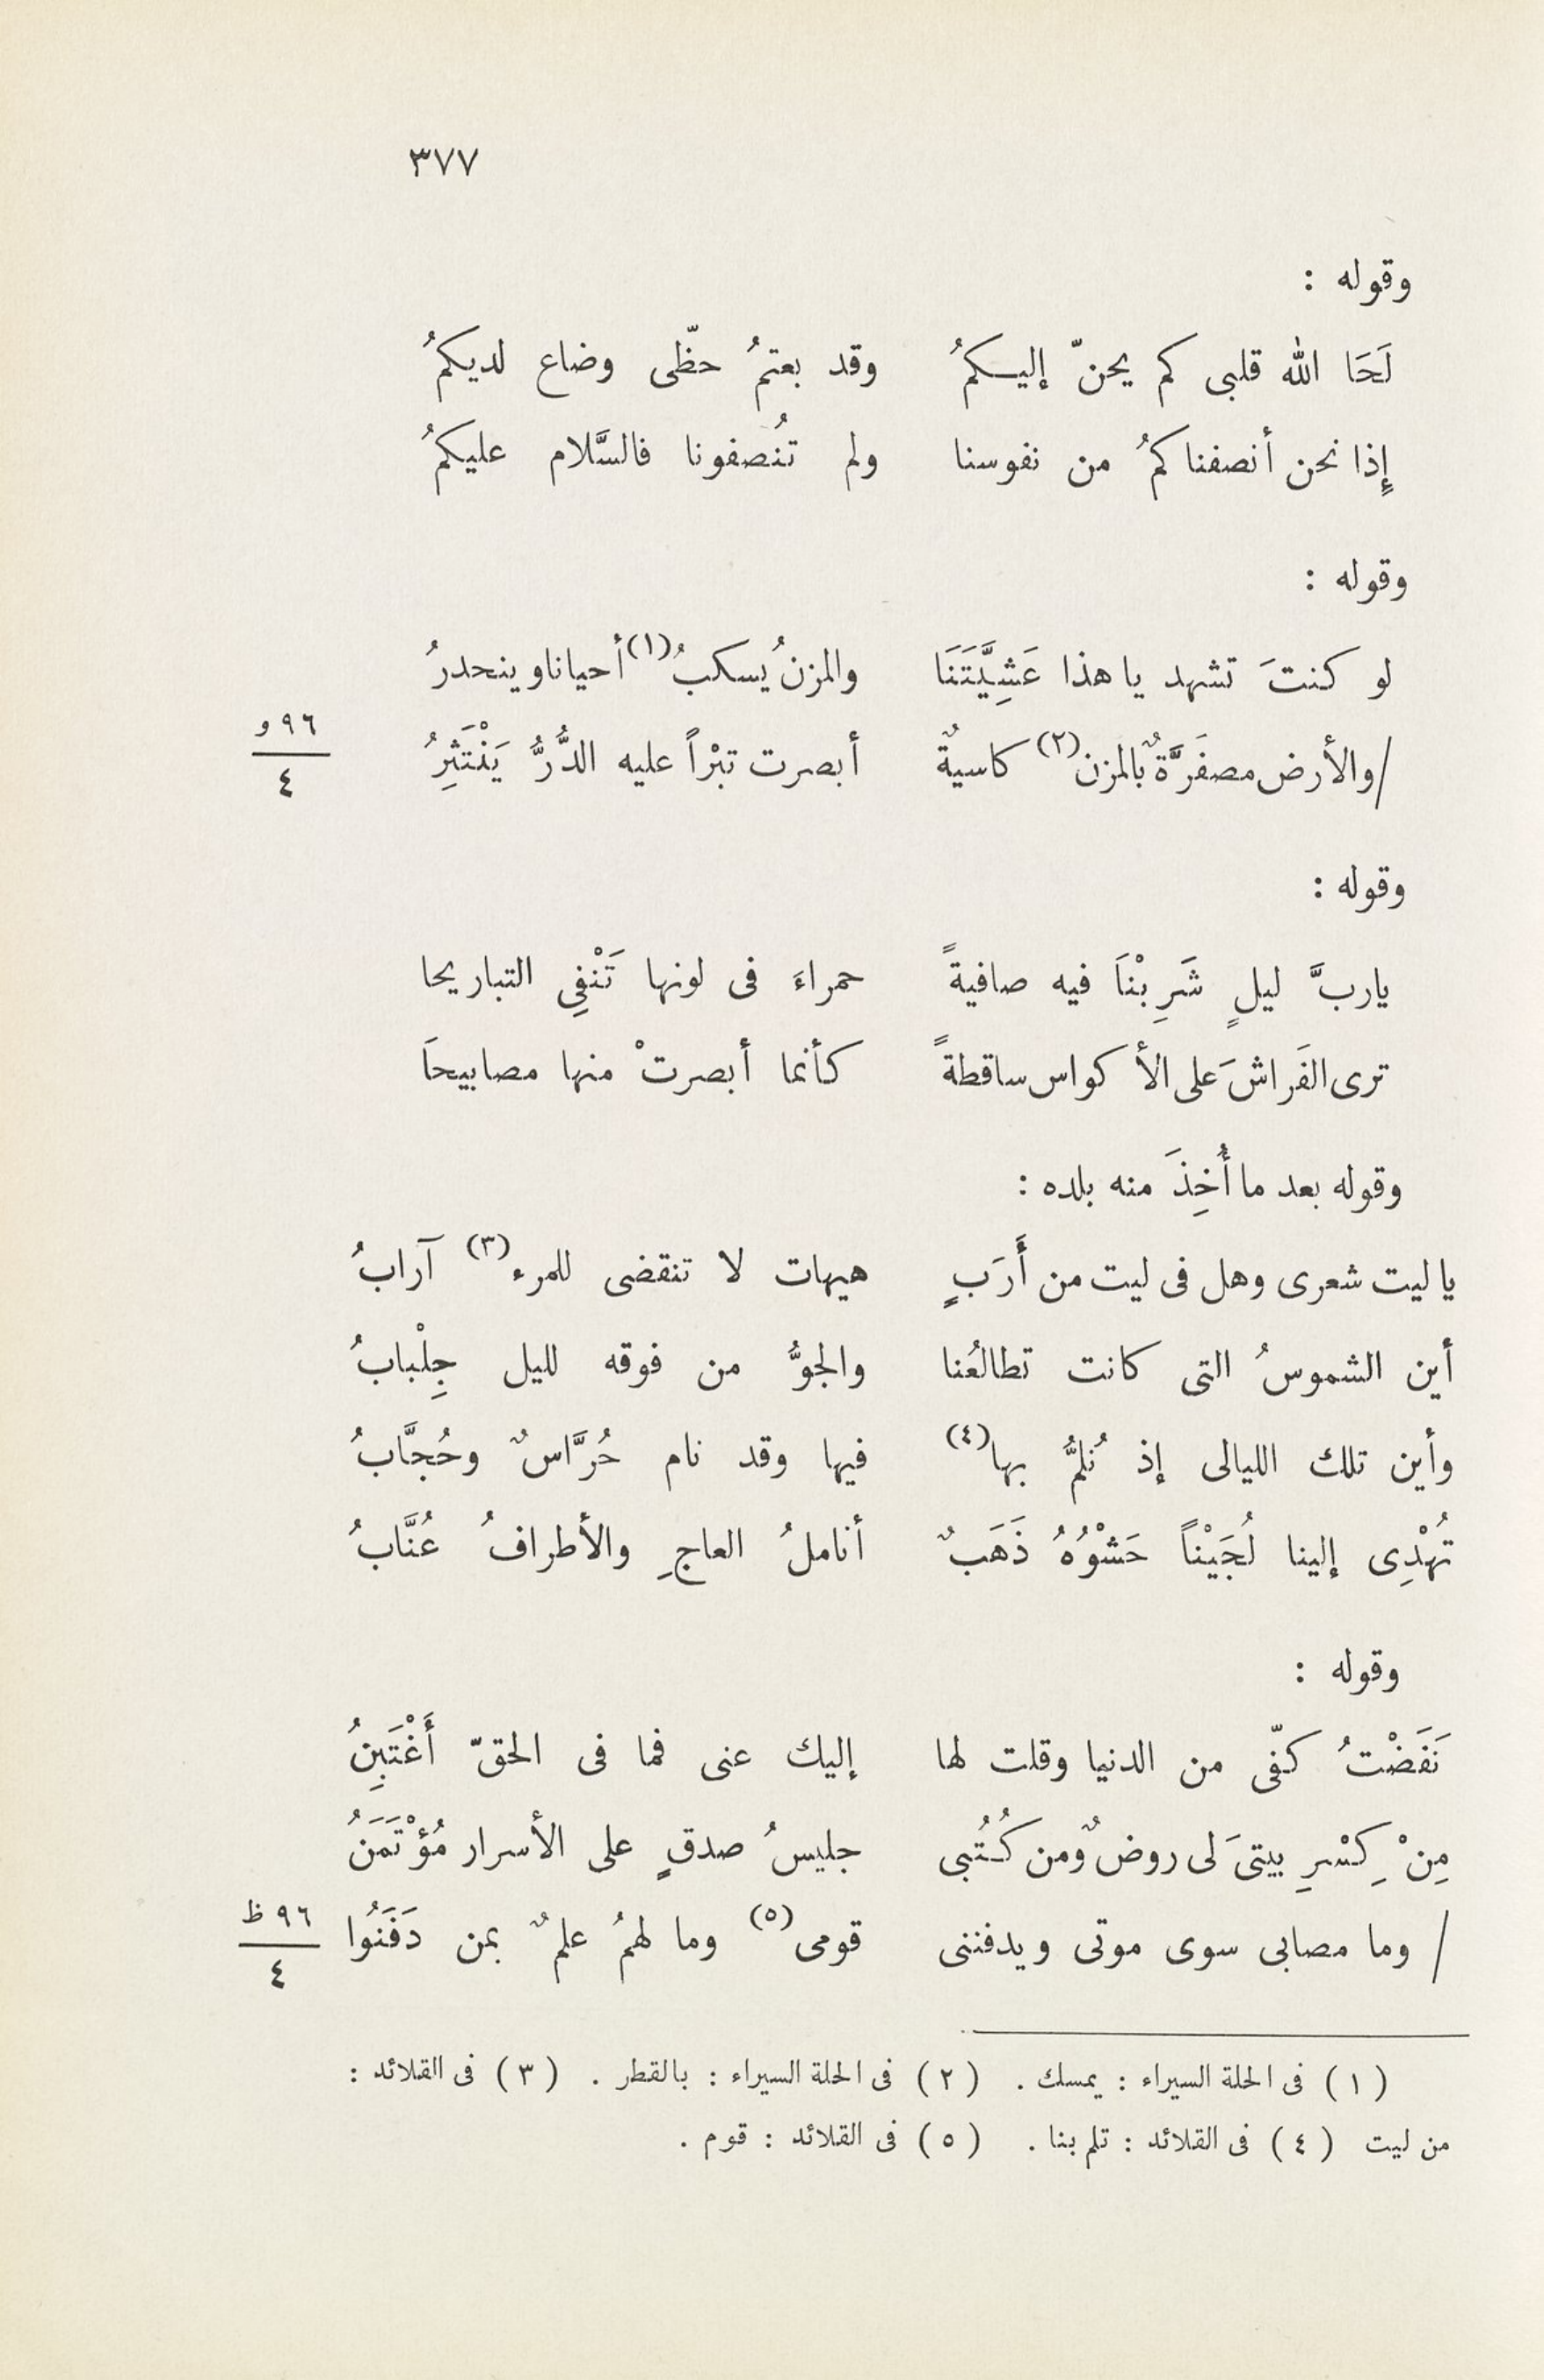 ٣٧٧
وقوله :
لَحَا الله قلبى كم يحنّ إليكمُ وقد بعتمُ حظّى وضاع لديكمُ
إِذا نحن أنصفناكمُ من نفوسنا ولم تُنصفونا فالسَّلام عليكمُ
وقوله :
لو كنتَ تشهد يا هذا عَشِيَّتَنَا والمزنُ يسكبُ(١) أحيانا وينحدرُ
/والأرض مصفَرَّةٌ بالمزن(٢) كاسيةٌ أبصرت تبْراً عليه الدُّرُّ يَنْتَثِرُ
٩٦ و
٤
وقوله :
ياربَّ ليلٍ شَرِبْنَا فيه صافيةً حمراءَ فى لونها تَنْفِى التباريحا
ترى الفَراشَ على الأكواس ساقطةً كأنما أبصرتْ منها مصابيحَا
وقوله بعد ما أُخِذَ منه بلده :
يا ليت شعرى وهل فى ليت من أَرَبٍ هيهات لا تنقضى للمرء(٣) آرابُ
أين الشموسُ التى كانت تطالعُنا والجوُّ من فوقه لليل جِلْبابُ
وأين تلك الليالى إذ نُلمُّ بها(٤) فيها وقد نام حُرَّاسٌ وحُجَّابُ
تُهْدِى إلينا لُجَيْناً حَشْوُهُ ذَهَبٌ أناملُ العاجِ والأطرافُ عُنَّابُ
وقوله :
نَفَضْتُ كفّى من الدنيا وقلت لها إليك عنى فما فى الحقّ أَغْتَبِنُ
مِنْ كِسْرِ بيتىَ لى روضٌ ومن كُتُبى جليسُ صدقٍ على الأسرار مُؤْتَمَنُ
/ وما مصابى سوى موتى ويدفننى قومى(٥) وما لهمُ علمٌ بمن دَفَنُوا
٩٦ ظ
٤
(١) فى الحلة السيراء : يمسك . (٢) فى الحلة السيراء : بالقطر . (٣) فى القلائد :
من ليت (٤) فى القلائد : تلم بنا . (٥) فى القلائد : قوم .